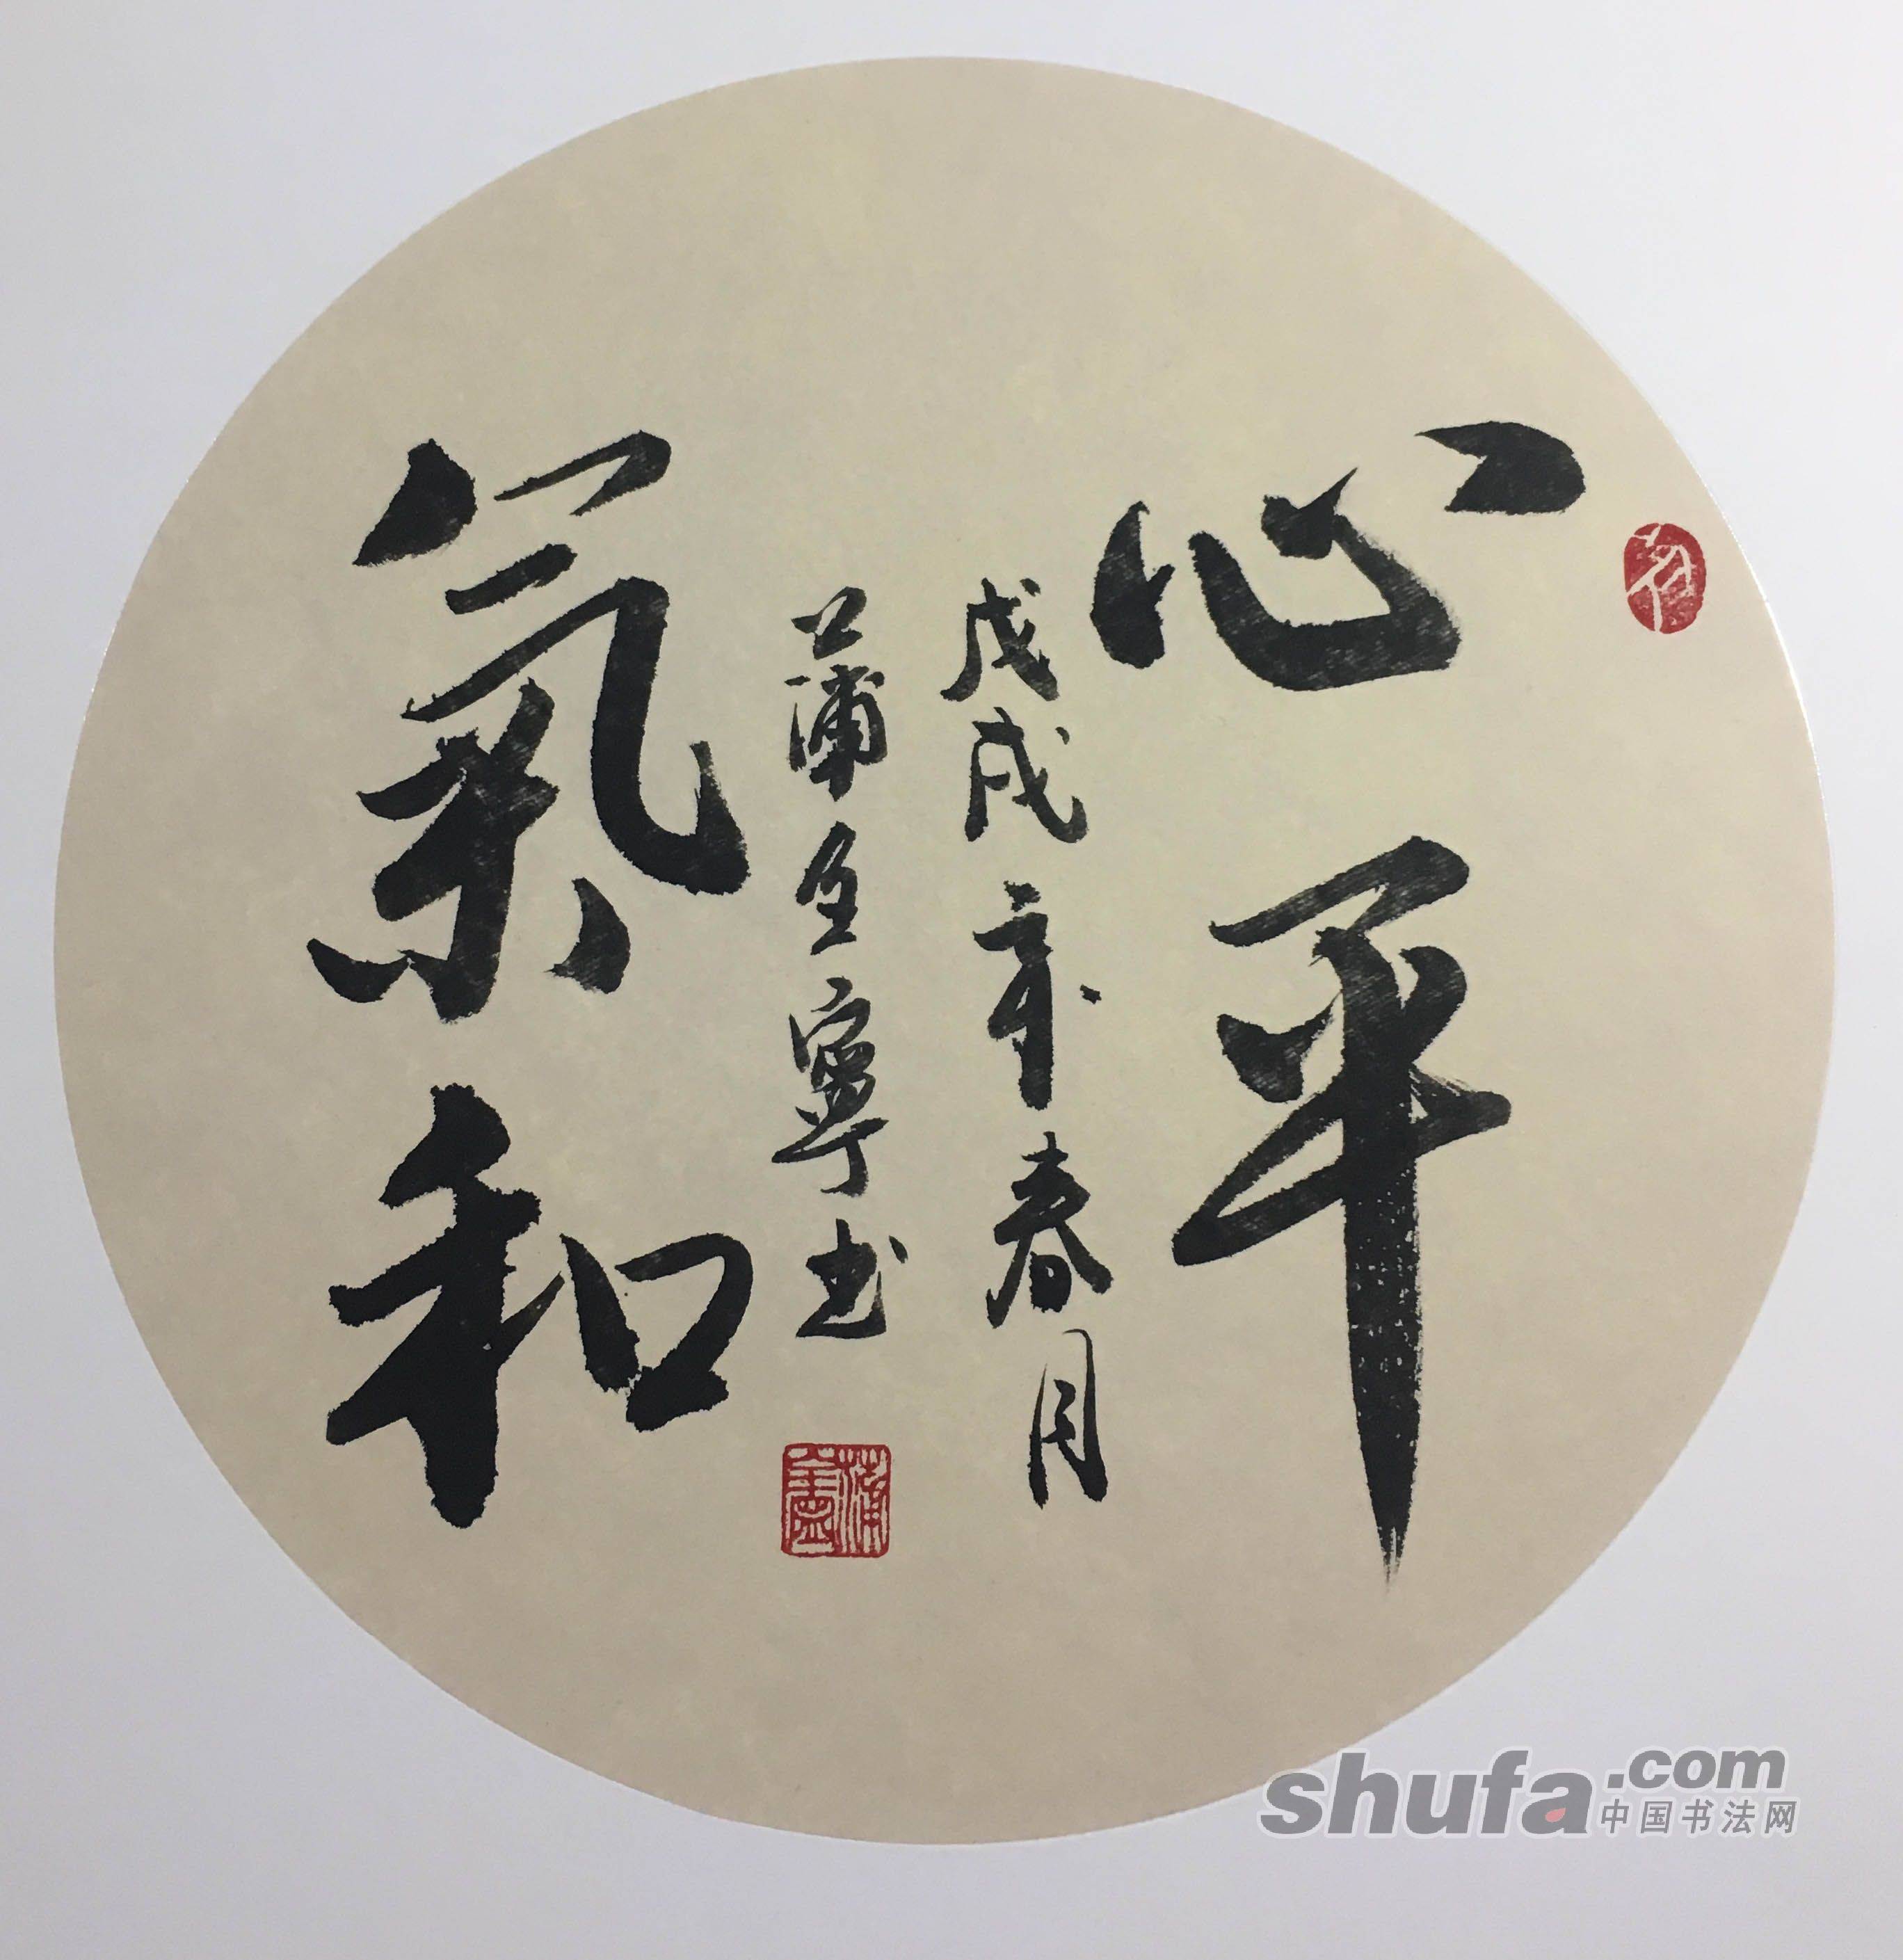 心平
戊戌年春月
蒲全寧书
氣和
shufa.com
中国书法网